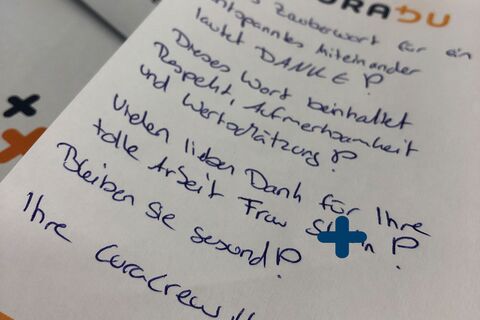 CURADU
s Zauberwort für ein
entspanntes Miteinander
lautet DANKE!
Dieses Wort beinhaltet
Respekt, Aufmerksamkeit
und Wertschätzung!
Vielen lieben Dank für Ihre
tolle Arbeit Frau
Bleiben Sie gesund!
Ihre CuraCrew